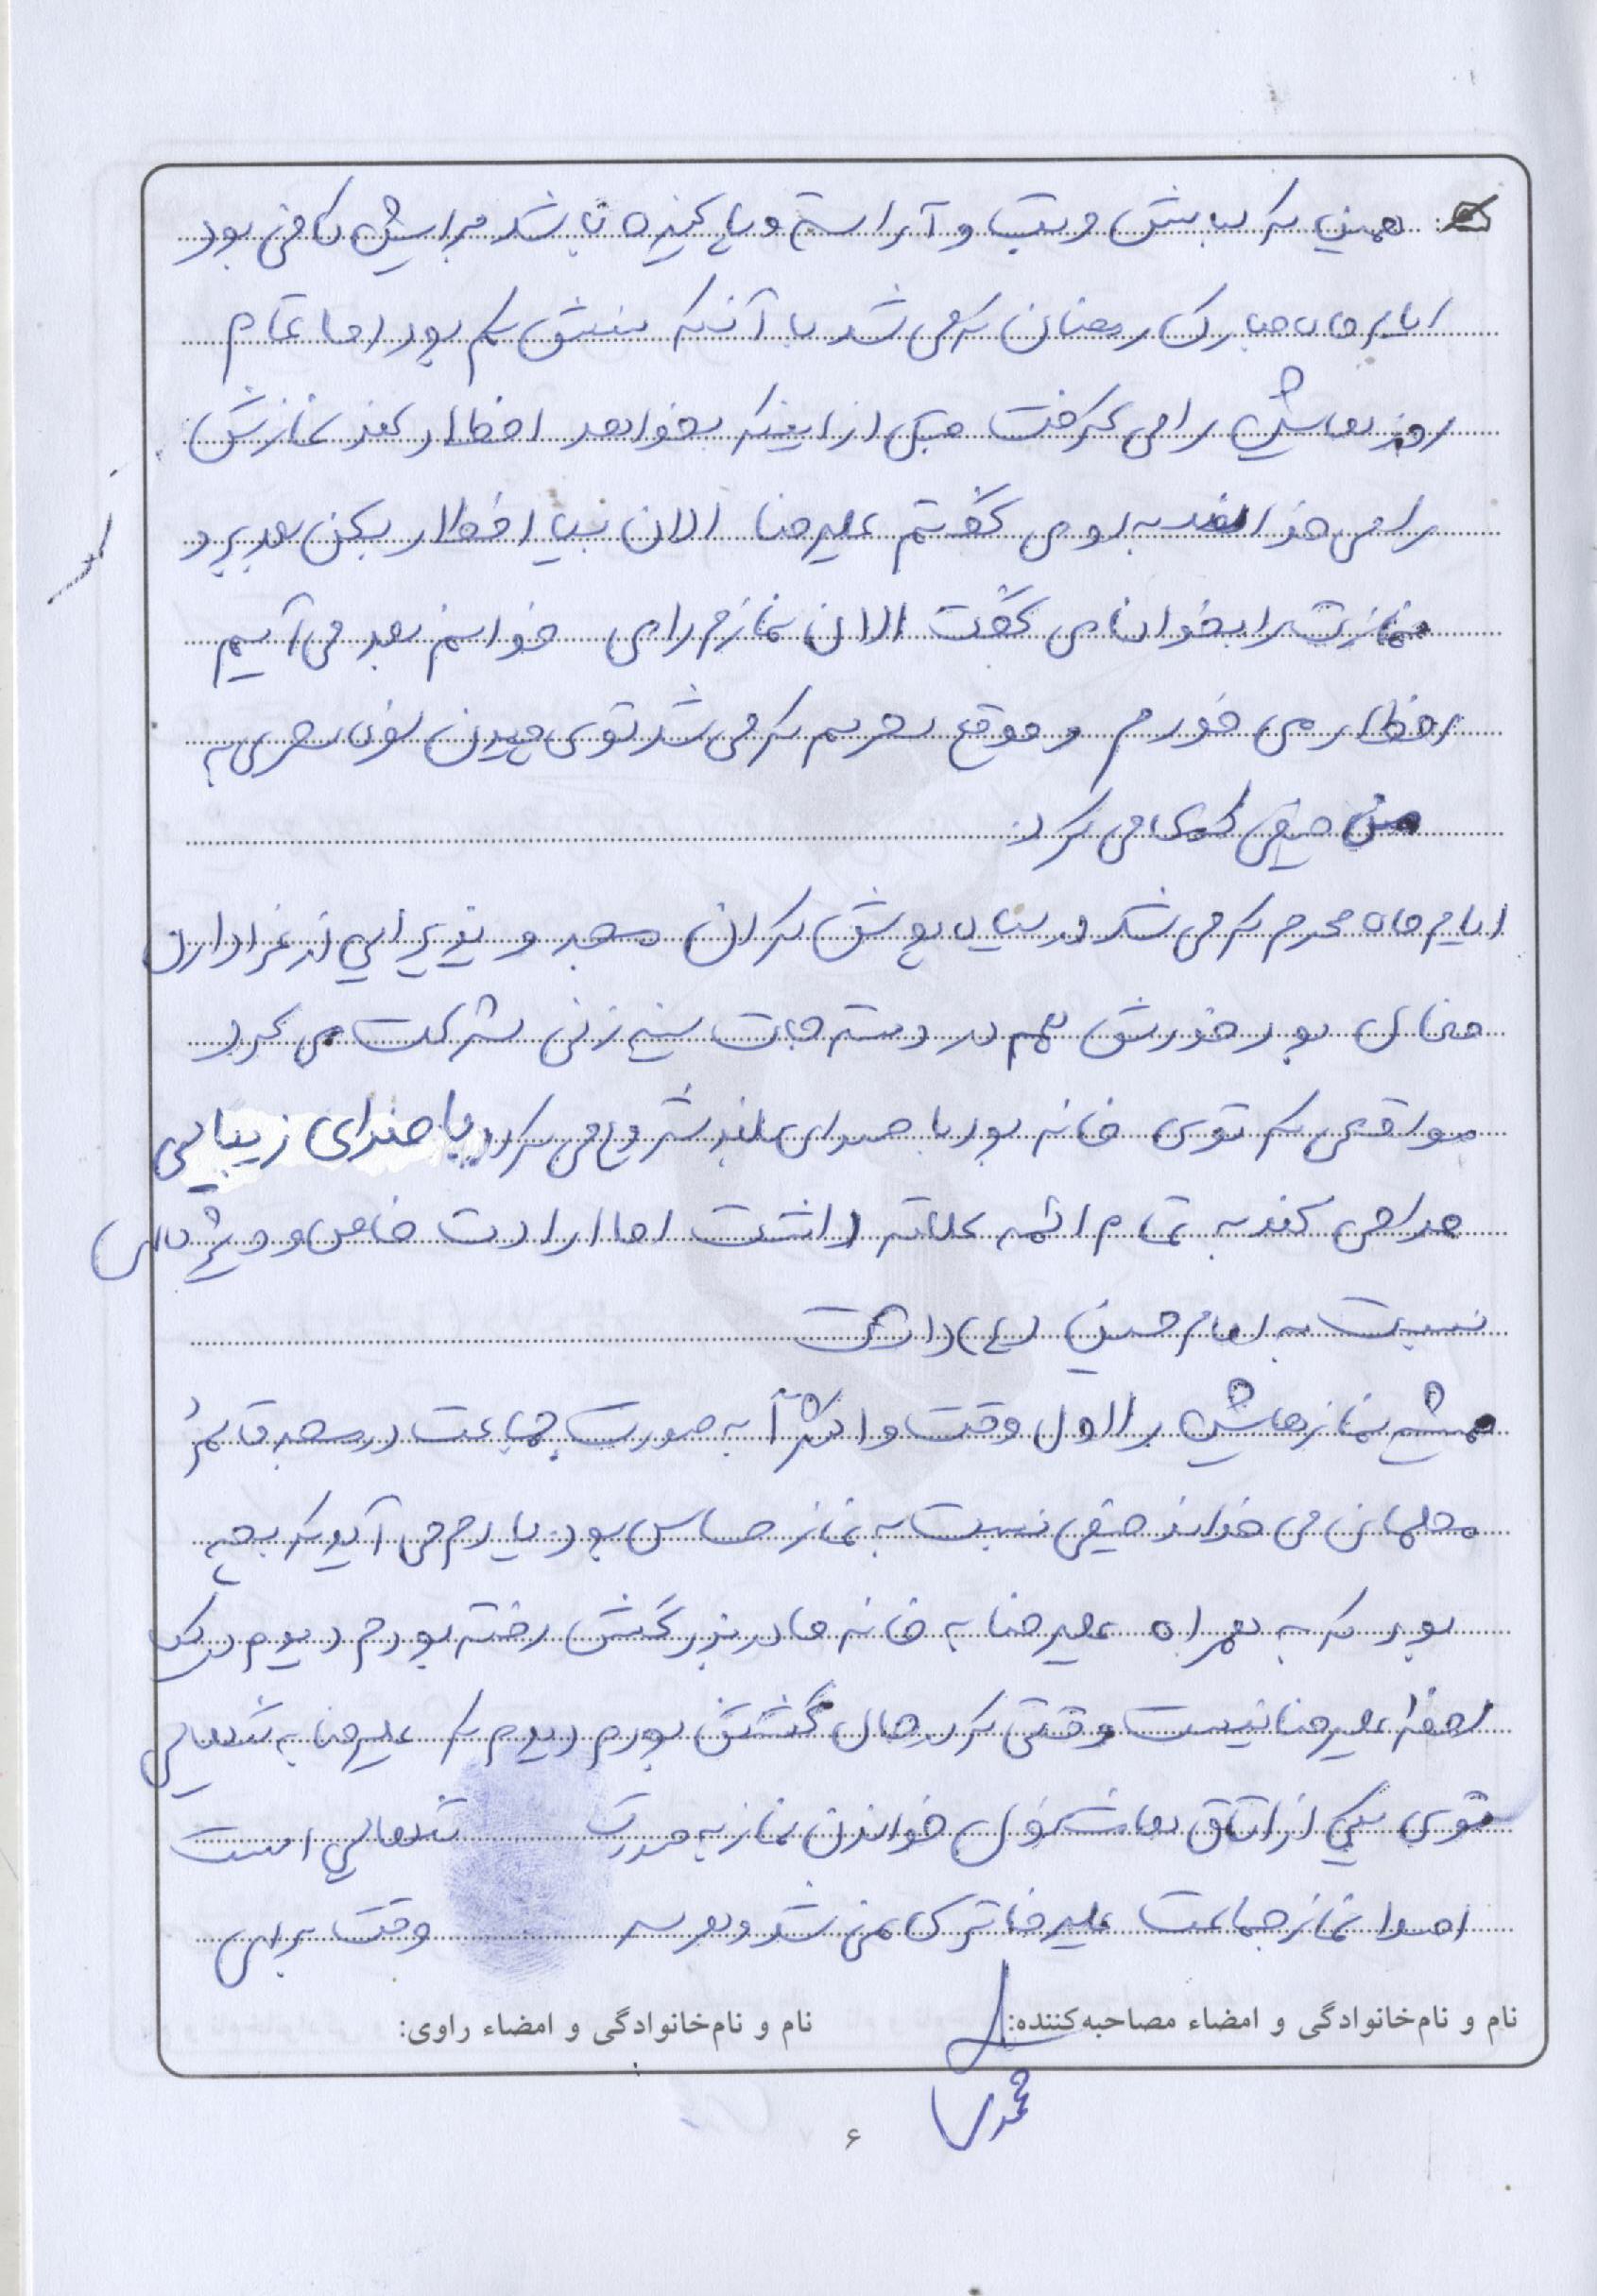 همین که لباسش مرتب و آراسته و پاکیزه باشد برایش کافی بود
ایام ماه مبارک رمضان که می شد با آنکه سنش کم بود اما تمام
روزه هایش را می گرفت قبل از اینکه بخواهد افطار کند نمازش
را می خواند به او می گفتم علیرضا الان بیا افطار بکن بعد برو
نمازت را بخوان می گفت الان نمازم را می خوانم بعد می آیم
افطار می خورم و موقع سحر هم که می شد توی چیدن سفره سحری به
من خیلی کمک می کرد.
ایام ماه محرم که می شد در سیاه پوش کردن مسجد و پذیرایی از عزاداران
فعال بود خودش هم در دسته جات سینه زنی شرکت می کرد
مواقعی که توی خانه بود با صدای بلند شروع می کرد با صدای زیبایی
مداحی کند به تمام ائمه علاقه داشت اما ارادت خاص و ویژه ای
نسبت به امام حسین (ع) داشت
همیشه نمازهایش را اول وقت و اکثراً به صورت جماعت در مسجد قائم
محلمان می خواند خیلی نسبت به نماز حساس بود. یادم می آید که بچه
بود که به همراه علیرضا به خانه مادربزرگش رفته بودم دیدم در یک
لحظه علیرضا نیست وقتی که در حال گشتن بودم دیدم که علیرضا به تنهایی
توی یکی از اتاق ها مشغول خواندن نماز به صورت تنهایی است
اصولا نماز جماعت علیرضا ترک نمی شد و هر سه وقت برای
نام و نام‌خانوادگی و امضاء مصاحبه‌کننده:
نام و نام‌خانوادگی و امضاء راوی:
۶